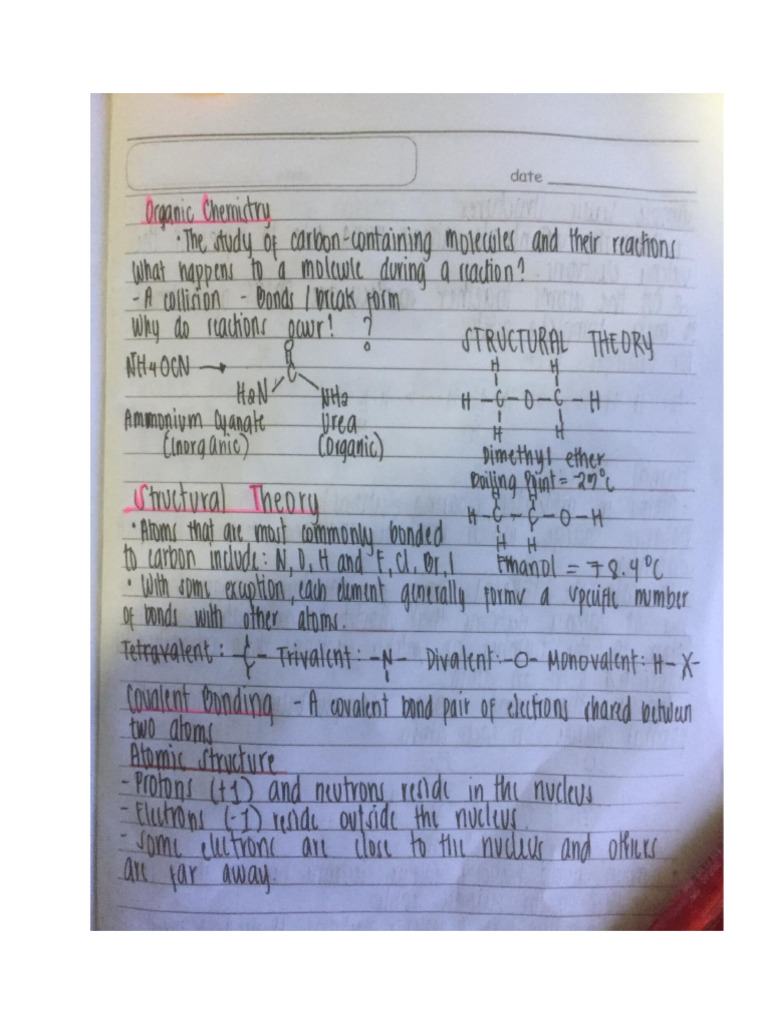 date
Organic Chemistry
• The study of carbon-containing molecules and their reactions
What happens to a molecule during a reaction?
- A collision - Bonds / break form
Why do reactions occur! ?
STRUCTURAL THEORY
O
NH4OCN → C
H2N NH2
Ammonium Cyanate Urea
(Inorganic) (Organic)
H H
H - C - O - C - H
H H
Dimethyl ether
Boiling Point = -25°C
Structural Theory
H H
H - C - C - O - H
H H
• Atoms that are most commonly bonded
to carbon include: N, O, H and F, Cl, Br, I
Ethanol = 78.4°C
• With some exception, each element generally forms a specific number
of bonds with other atoms.
Tetravalent: - C - Trivalent: - N - Divalent: - O - Monovalent: H - X -
Covalent Bonding - A covalent bond pair of electrons shared between
two atoms
Atomic structure
- Protons (+1) and neutrons reside in the nucleus
- Electrons (-1) reside outside the nucleus.
- Some electrons are close to the nucleus and others
are far away.